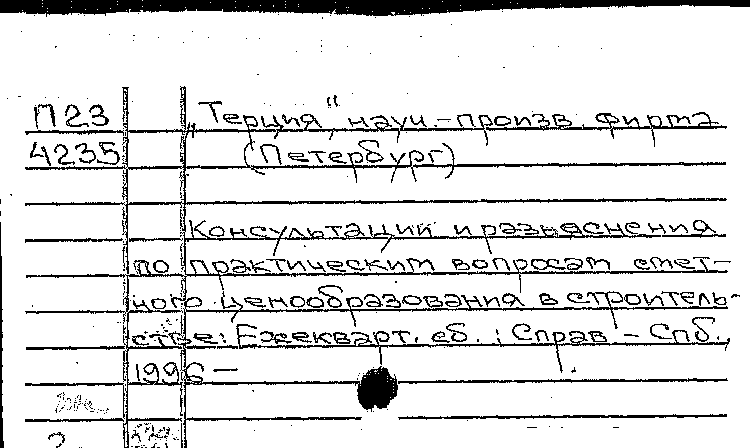 П23 „Терция“, науч.-произв. фирма
4235 (Петербург)
Консультации и разъяснения
по практическим вопросам смет-
ного ценообразования в строитель-
стве: Ежекварт. сб. : Справ. - Спб.,
1996 —